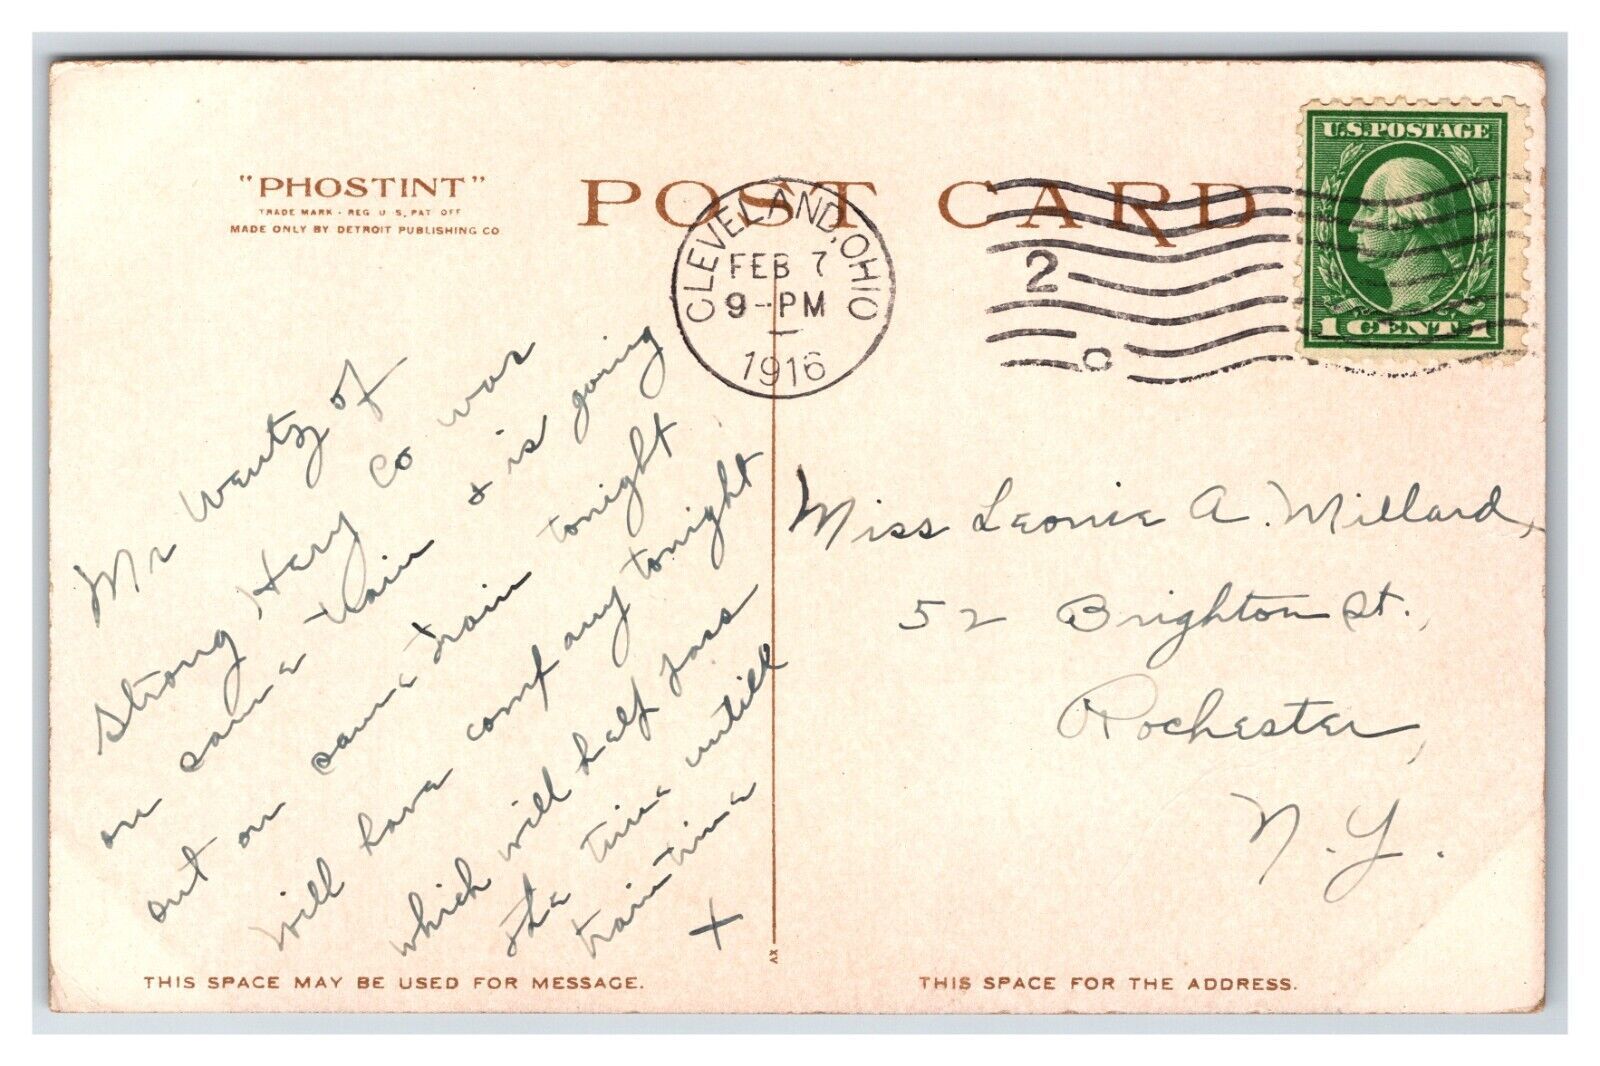 "PHOSTINT"
TRADE MARK · REG U.S. PAT OFF
MADE ONLY BY DETROIT PUBLISHING CO
POST CARD
CLEVELAND, OHIO
FEB 7
9-PM
1916
2
C
U.S. POSTAGE
1 CENT 1
Mr Wentz of
Strong, Hery Co was
on same train & is going
out on same train tonight
will have company tonight
which will help pass
the time untill
train time
X
Miss Leonie A. Millard,
52 Brighton St.,
Rochester,
N.Y.
XV
THIS SPACE MAY BE USED FOR MESSAGE.
THIS SPACE FOR THE ADDRESS.